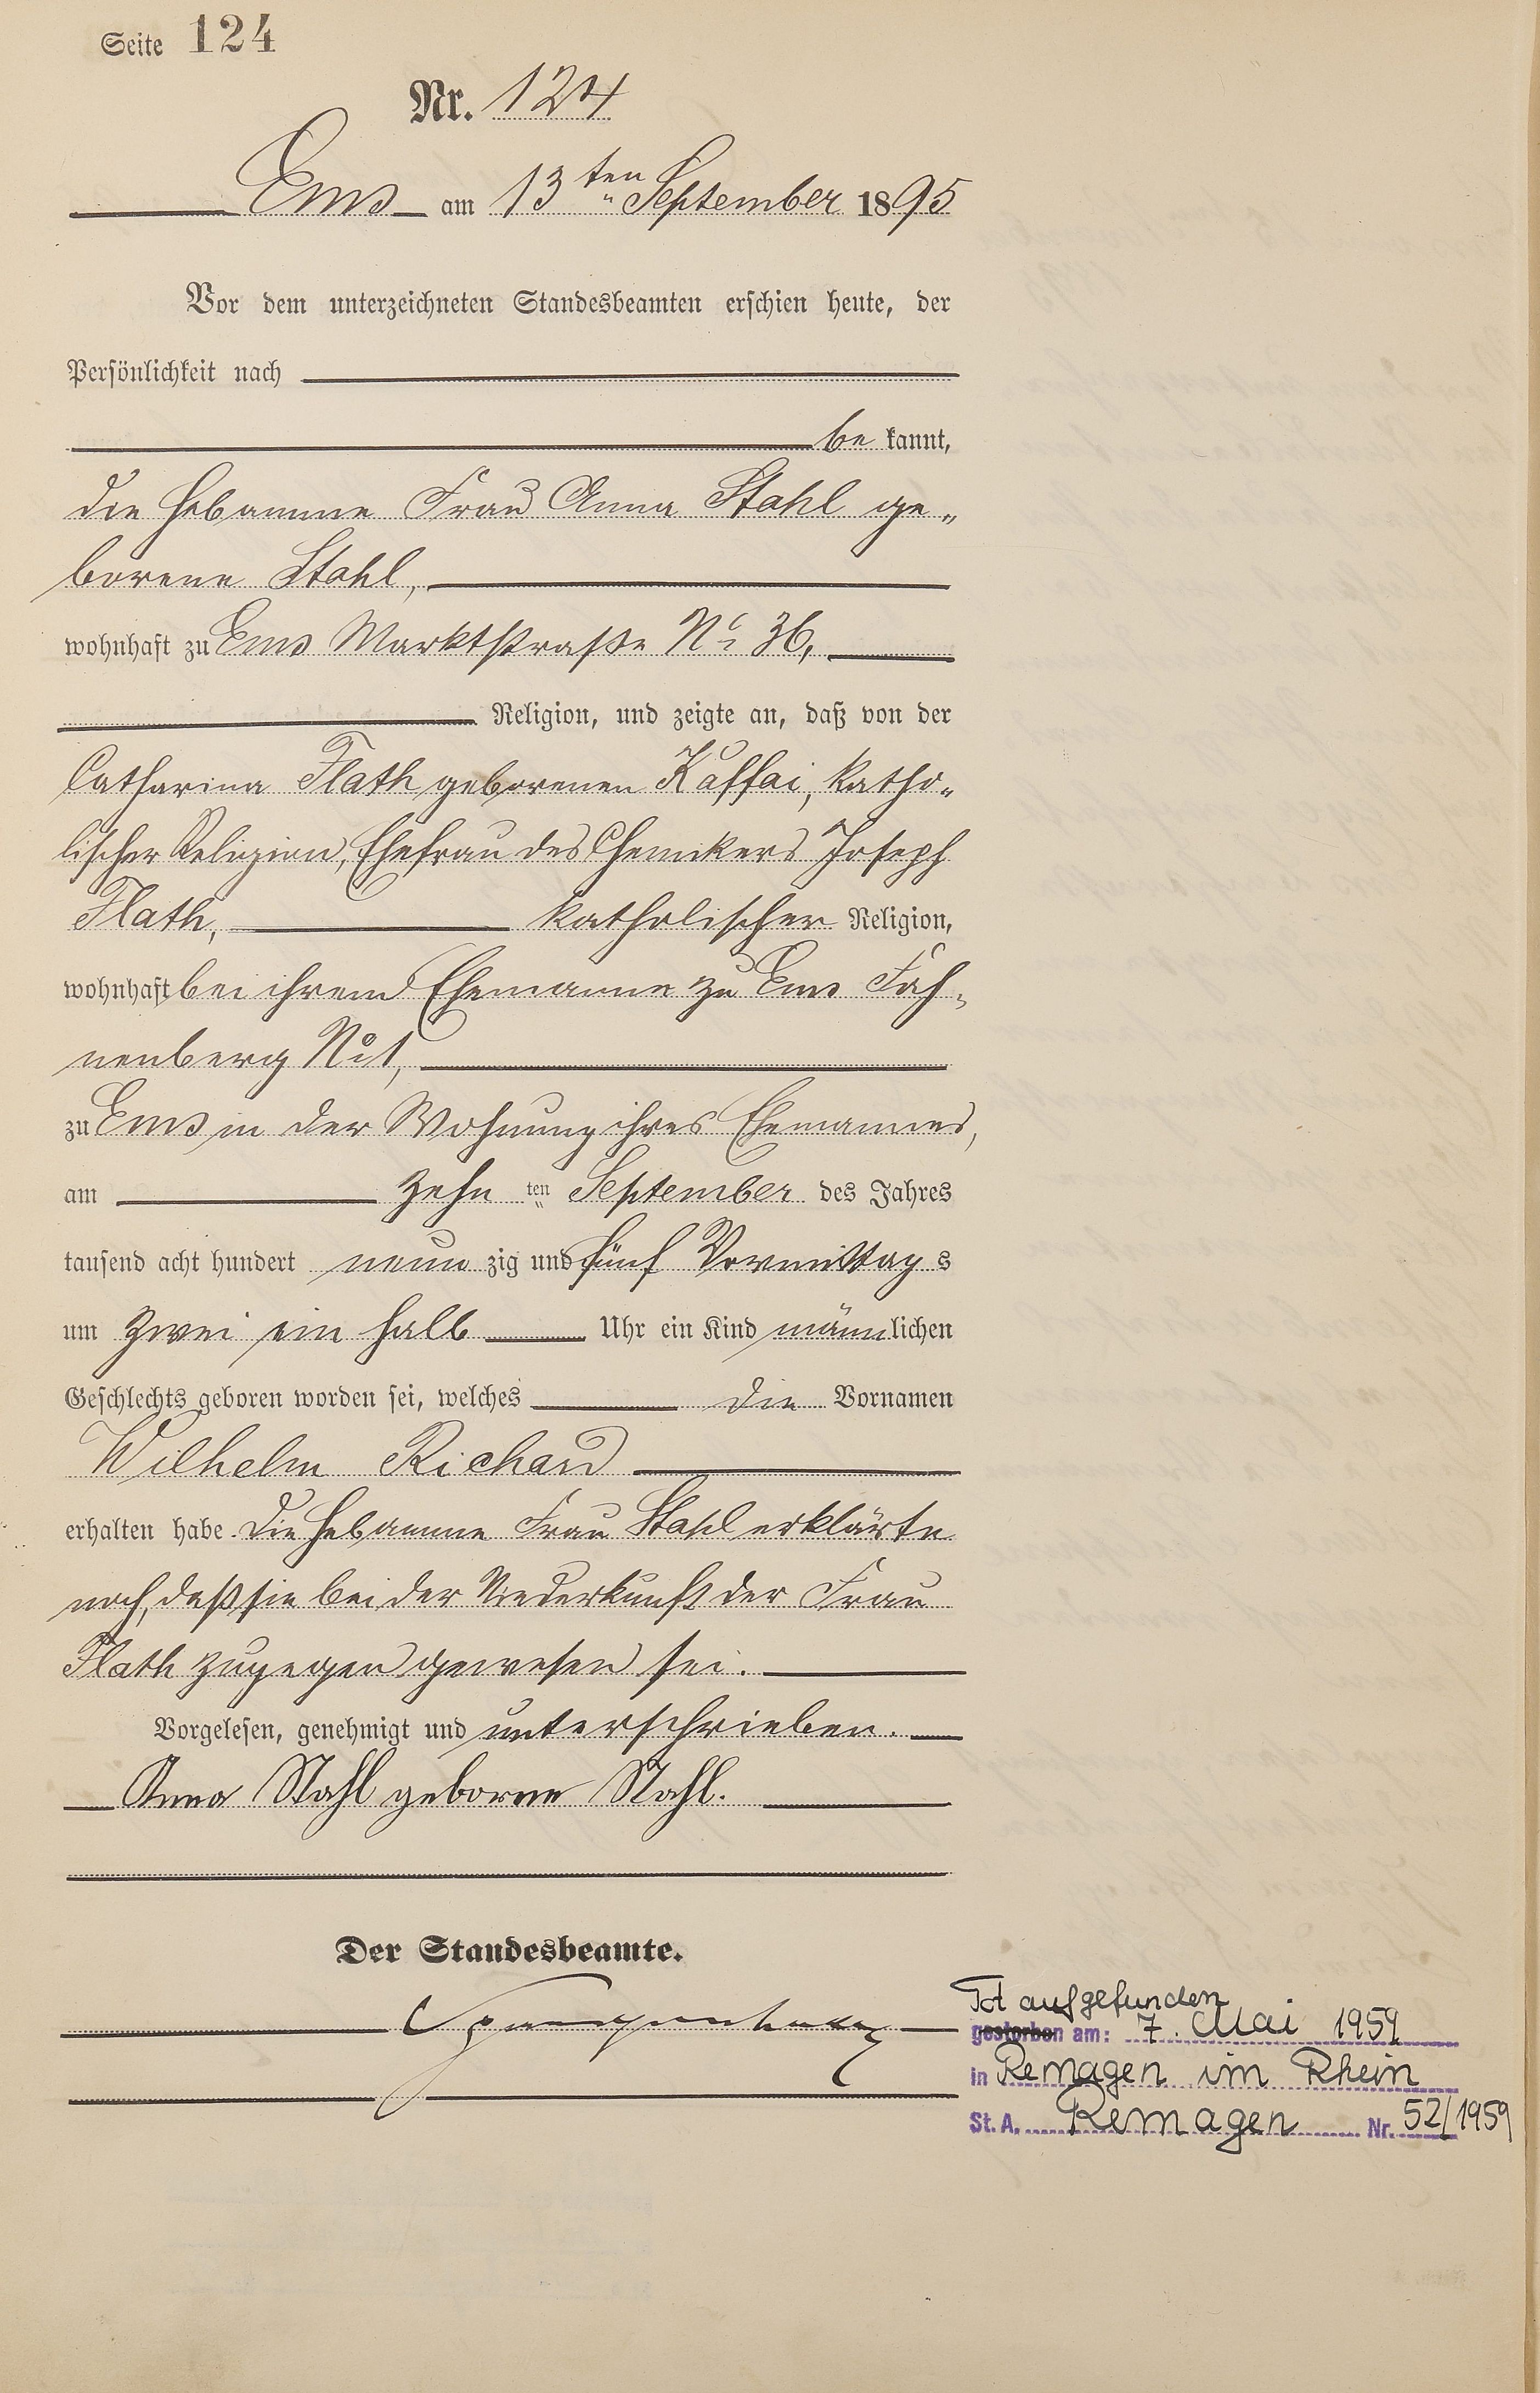 Seite 124
Nr. 124
Ems am 13ten September 1895
Vor dem unterzeichneten Standesbeamten erschien heute, der
Persönlichkeit nach
be kannt,
die Hebamme Frau Anna Stahl ge„
borene Stahl,
wohnhaft zu Ems Marktstraße No 36,
Religion, und zeigte an, daß von der
Catharina Flath geborenen Kaffai, katho„
lischer Religion, Ehefrau des Chemikers Joseph
Flath, katholischer Religion,
wohnhaft bei ihrem Ehemanne zu Ems Fah„
nenberg No 1,
zu Ems in der Wohnung ihres Ehemannes,
am zehn ten September des Jahres
tausend acht hundert neun zig und fünf Vormittag s
um zwei ein halb Uhr ein Kind männlichen
Geschlechts geboren worden sei, welches die Vornamen
Wilhelm Richard
erhalten habe. Die Hebamme Frau Stahl erklärte
noch, daß sie bei der Niederkunft der Frau
Flath zugegen gewesen sei.
Vorgelesen, genehmigt und unterschrieben.
Anna Stahl geborne Stahl.
Der Standesbeamte.
Tot aufgefunden
gestorben am: 7. Mai 1959
in Remagen im Rhein
St. A. Remagen Nr. 52/1959